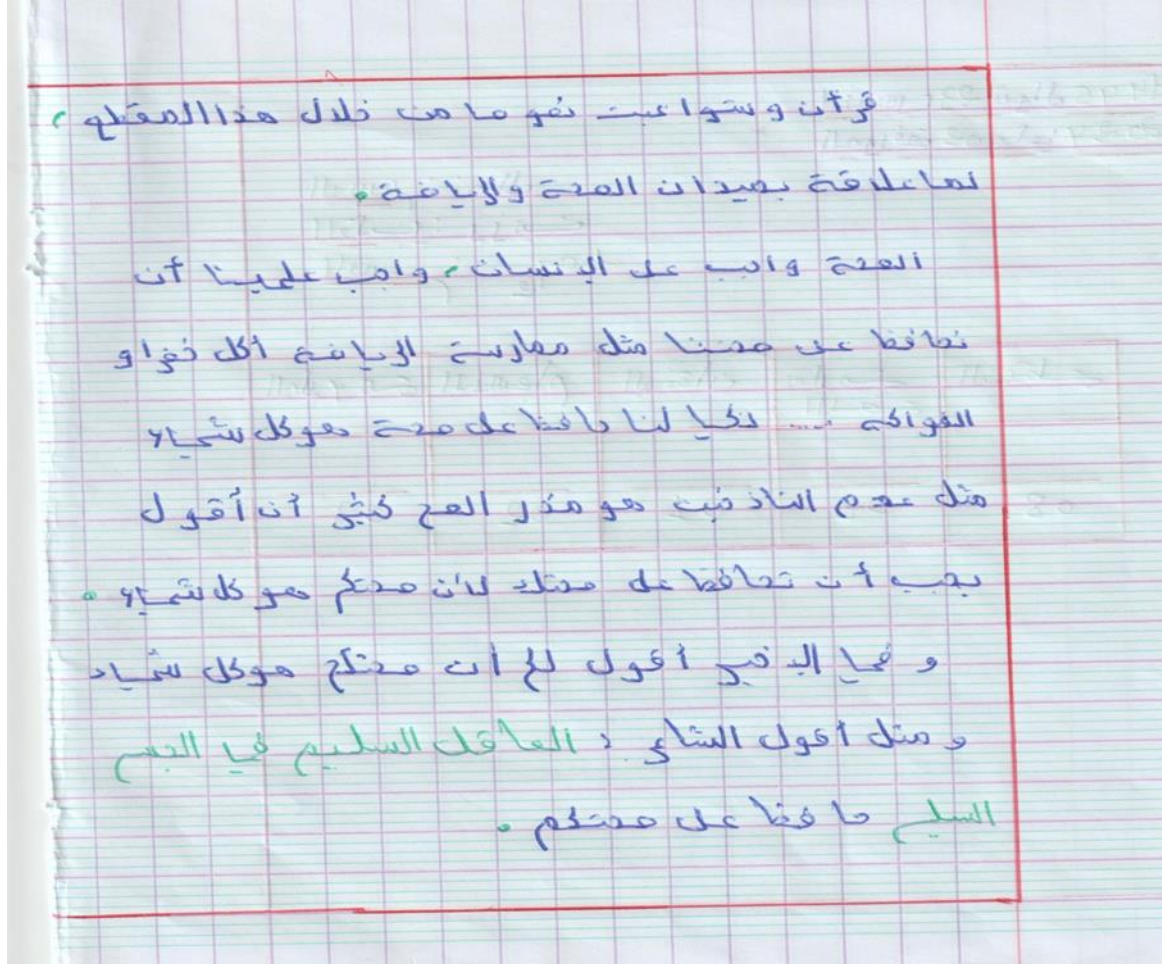 قرأن وستواعبت نصو ما من خلال هذا المقطع ،
لها علاقة بميدان الصحة ولاياضة .
الصحة واجب على الإنسان ، واجب علينا أن
نحافظ على صحتنا مثل ممارسة الرياضة أكل خضر او
الفواكه .... لنا حافظ على صحة هو كل شيئ
مثل عدم هو الصح كثير أن أقول
يجب أن تحافظ على صحتك لأن صحتكم هو كل شيئ .
و في الإخير أقول لكم أن صحتكم هو كل شياء
و مثل اقول الشاعر : العاقل السليم في الجسم
السليم حافظ على صحتكم .